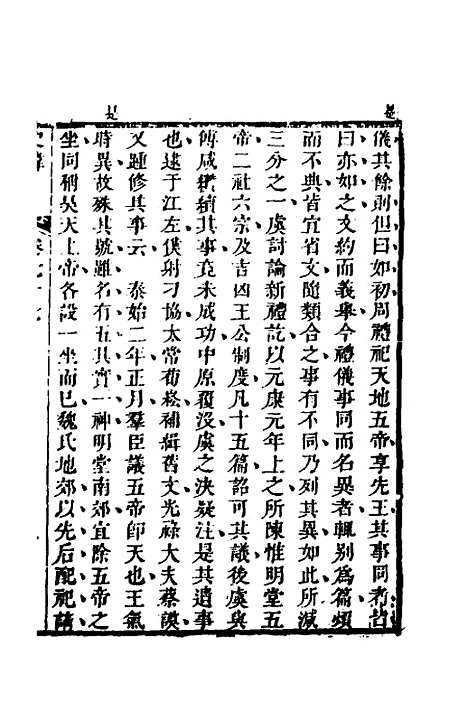 儀其餘則但曰如初周禮祀天地五帝享先王其事同者皆
曰亦如之文約而義舉今禮儀事同而名異者輒別為篇煩
而不典皆宜省文隨類合之事有不同乃列其異如此所減
三分之一虞討論新禮訖以元康元年上之所陳惟明堂五
帝二社六宗及吉凶王公制度凡十五篇詔可其議後虞與
傅咸纘續其事竟未成功中原覆沒虞之決疑注是其遺事
也逮于江左僕射刁協太常荀崧補緝舊文光祿大夫蔡謨
又踵修其事云 泰始二年正月羣臣議五帝即天也王氣
時異故殊其號雖名有五其實一神明堂南郊宜除五帝之
坐同稱昊天上帝各設一坐而已魏氏地郊以先后配祀議
卷七十七